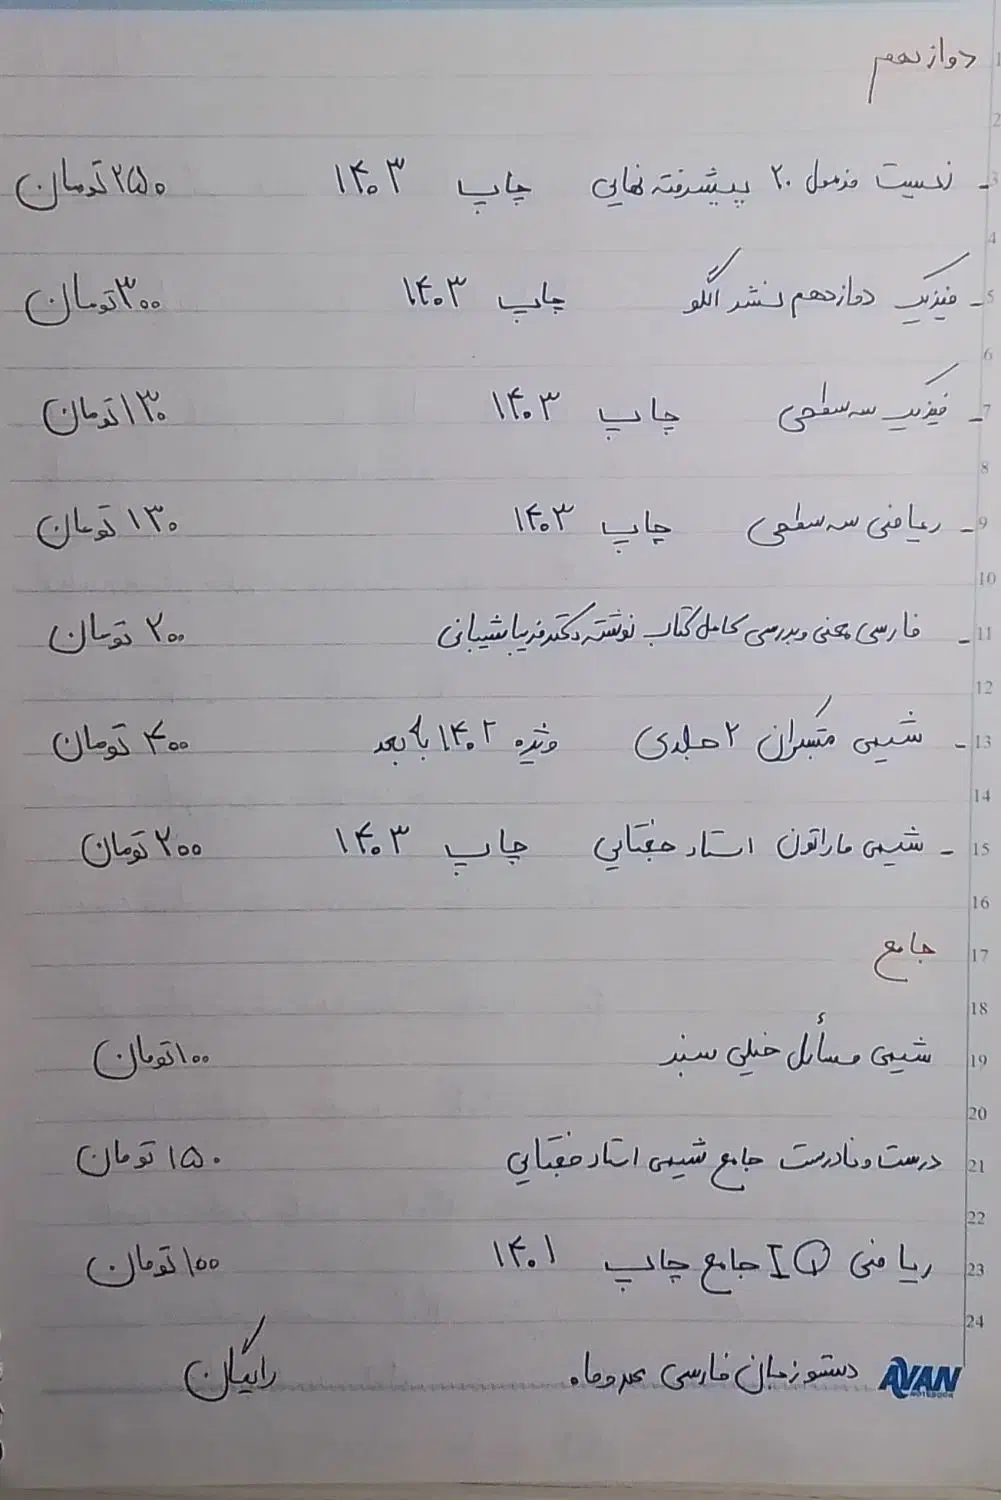 دوازدهم
- زیست فرمول ۲۰ پیشرفته نهایی چاپ ۱۴۰۳ ۲۵۰ تومان
- فیزیک دوازدهم نشر الگو چاپ ۱۴۰۳ ۳۰۰ تومان
- فیزیک سه سطحی چاپ ۱۴۰۳ ۱۳۰ تومان
- ریاضی سه سطحی چاپ ۱۴۰۳ ۱۳۰ تومان
- فارسی معنی و بررسی کامل کتاب نوشته دکتر فریبا شیبانی ۲۰۰ تومان
- شیمی مبتکران ۲ جلدی ویژه ۱۴۰۲ به بعد ۴۰۰ تومان
- شیمی ماراتون استاد حقتایی چاپ ۱۴۰۳ ۲۰۰ تومان
جامع
شیمی مسائل خیلی سبز ۱۰۰ تومان
درست و نادرست جامع شیمی استاد حقتایی ۱۵۰ تومان
ریاضی IQ جامع چاپ ۱۴۰۱ ۱۰۰ تومان
دستور زبان فارسی مهروماه رایگان
AVAN NOTEBOOK